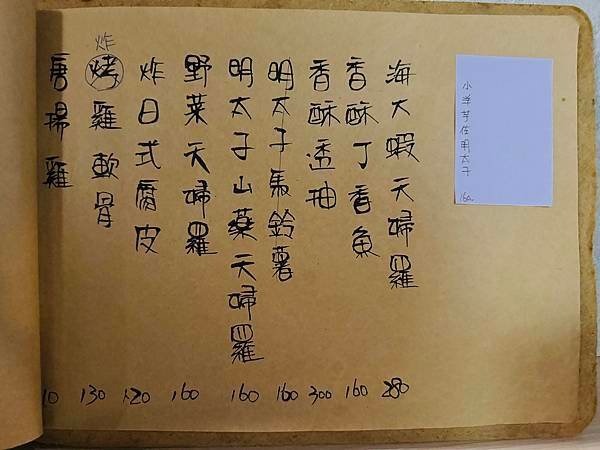 小洋芋佐明太子 160
海大蝦天婦羅 280
香酥丁香魚 160
香酥透抽 300
明太子馬鈴薯 160
明太子山藥天婦羅 160
野菜天婦羅 160
炸日式腐皮 120
炸
烤雞軟骨 130
唐揚雞